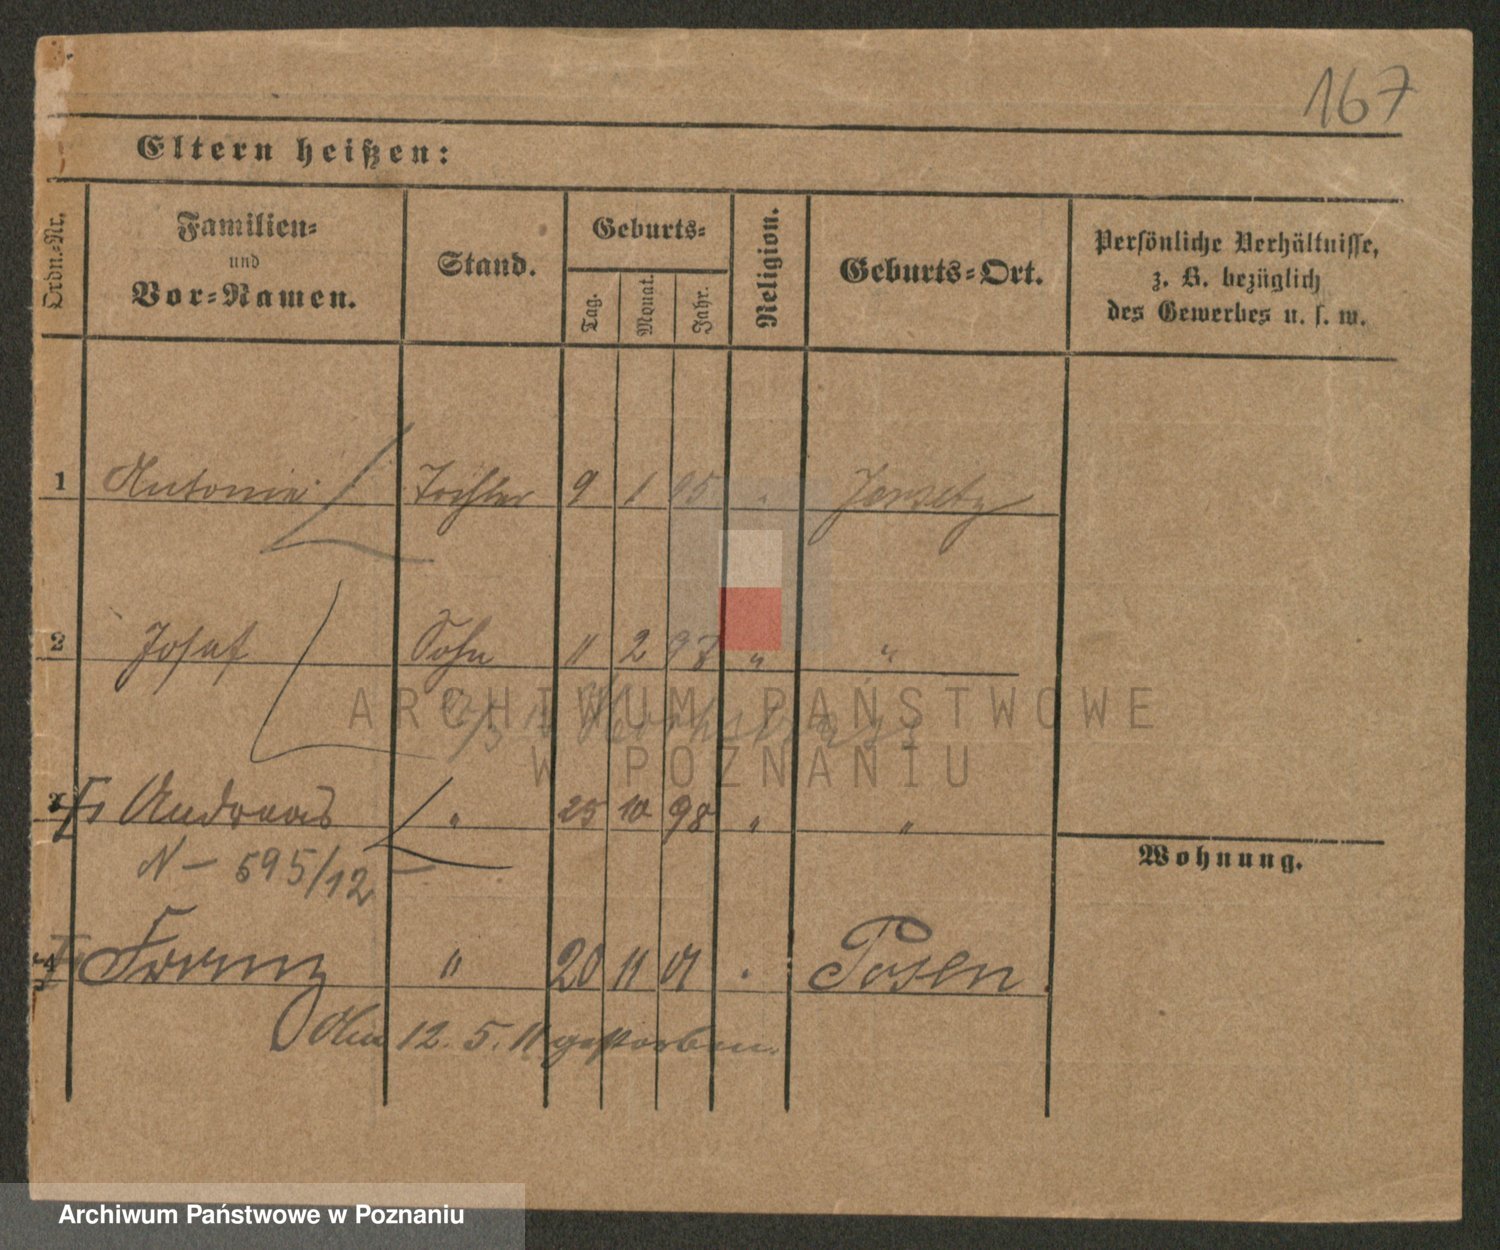 167
Eltern heißen:
Ordn.-Nr.
Familien-
und
Vor-Namen.
Stand.
Geburts-
Tag.
Monat.
Jahr.
Religion.
Geburts-Ort.
Persönliche Verhältnisse,
z. B. bezüglich
des Gewerbes u. s. w.
1 Antonie Tochter 9 1 95 " Jersitz
2 Josef Sohn 11 2 97 " "
ARCHIWUM PAŃSTWOWE
W POZNANIU
3 Andreas " 25 10 98 " "
N - 595/12
Wohnung.
4 Franz " 20 11 01 " Posen
Am 12. 5. 11 gestorben.
Archiwum Państwowe w Poznaniu